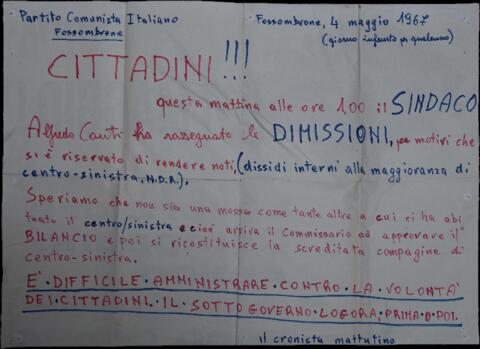 Partito Comunista Italiano
Fossombrone
Fossombrone, 4 maggio 1967
(giorno infausto per qualcuno)
CITTADINI!!!
questa mattina alle ore 1,00 il SINDACO
Alfredo Conti ha rassegnato le DIMISSIONI, per motivi che
si è riservato di rendere noti, (dissidi interni alla maggioranza di
centro-sinistra, N.D.R.).
Speriamo che non sia una mossa come tante altre a cui ci ha abi
tuato il centro/sinistra e cioè arriva il Commissario ad approvare il
BILANCIO e poi si ricostituisce la screditata compagine di
centro-sinistra.
E' DIFFICILE AMMINISTRARE CONTRO LA VOLONTA'
DEI CITTADINI. IL SOTTOGOVERNO LOGORA PRIMA O POI.
il cronista mattutino